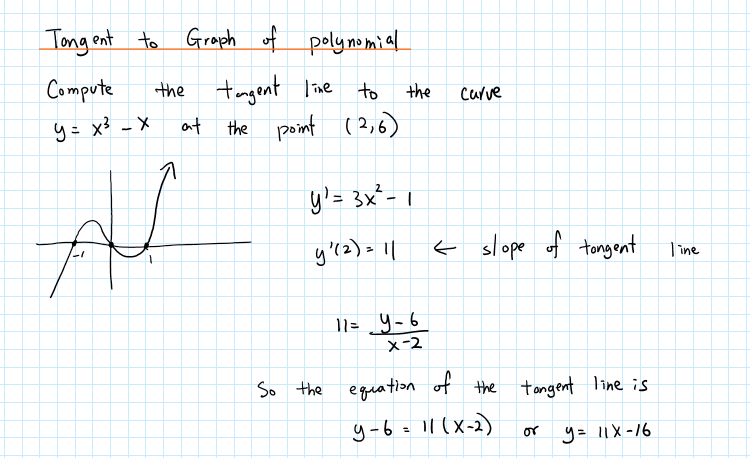 Tangent to Graph of polynomial
Compute the tangent line to the curve
y = x³ - x at the point (2,6)
y' = 3x² - 1
-1 1
y'(2) = 11 ← slope of tangent line
11 = (y-6)/(x-2)
So the equation of the tangent line is
y-6 = 11(x-2) or y = 11x-16